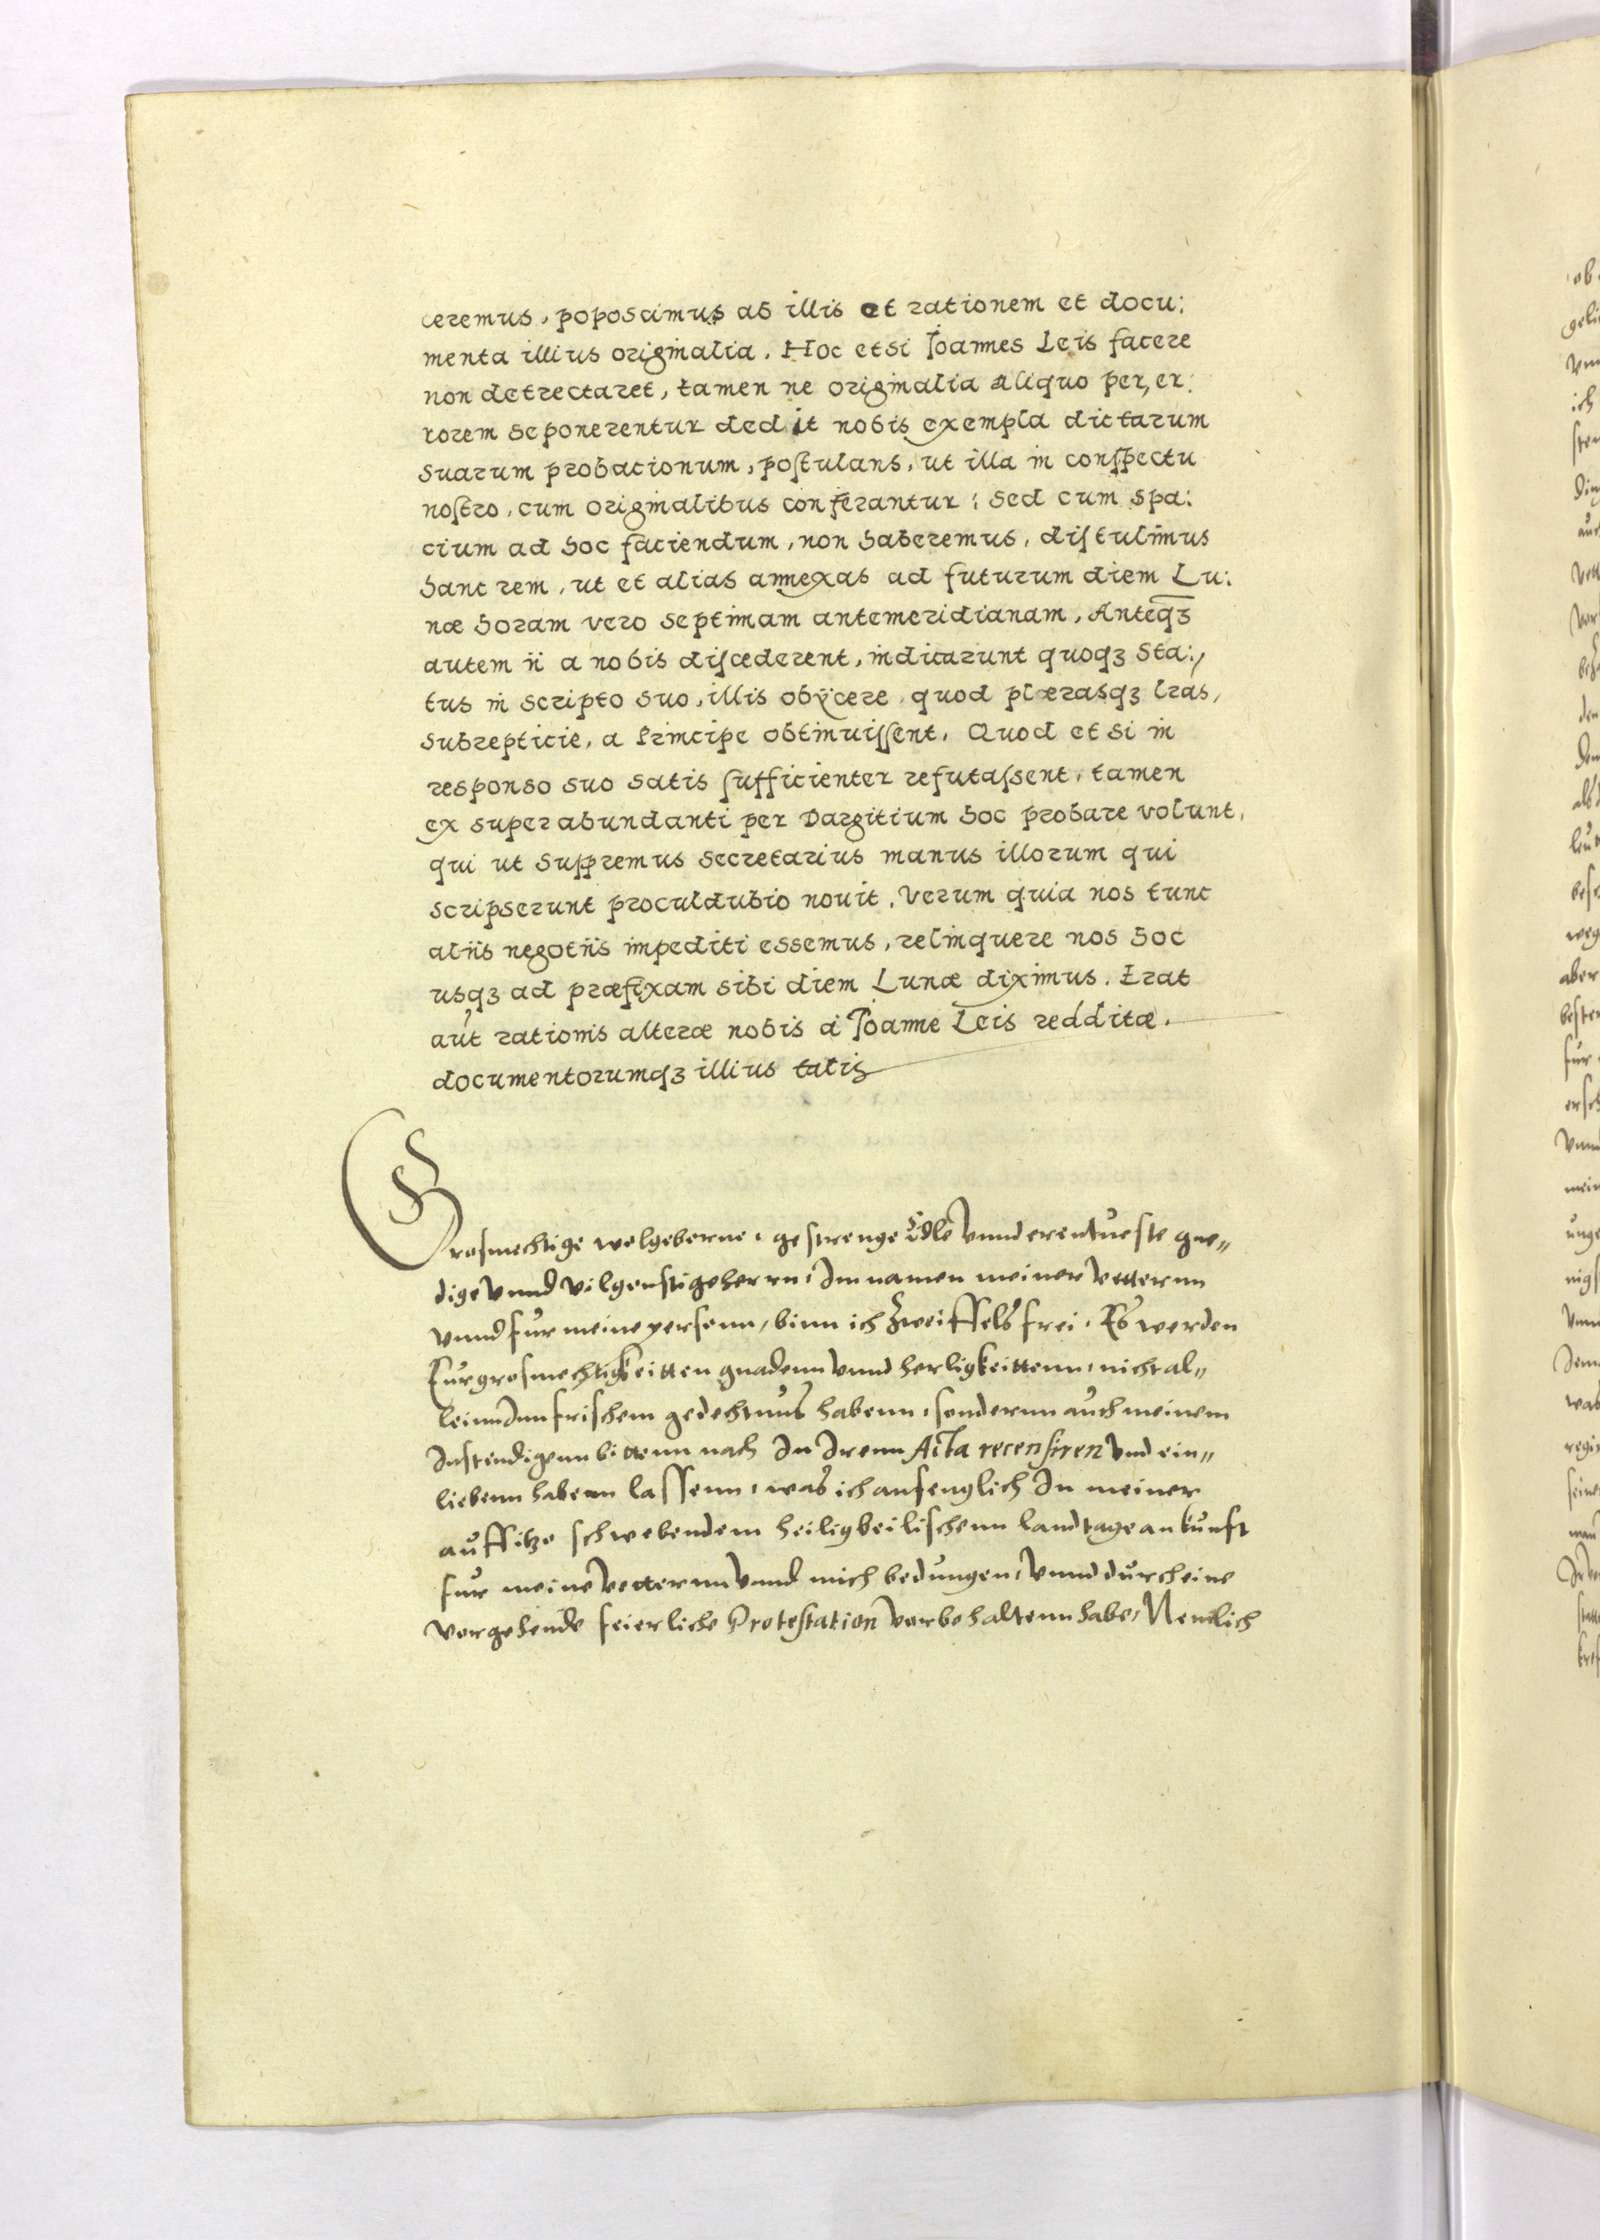 ceremus, poposcimus ab illis et rationem et docu:
menta illius originalia. Hoc etsi Joannes Leis facere
non detrectaret, tamen ne originalia aliquo per, er:
rorem seponerentur dedit nobis exempla dictarum
suarum probacionum, postulans, ut illa in conspectu
nostro, cum originalibus conferantur: sed cum spa:
cium ad hoc faciendum, non haberemus, distulimus
hanc rem, ut et alias annexas ad futurum diem Lu:
næ horam vero septimam antemeridianam, Anteq̄ʒ
autem ii a nobis discederent, indicarunt quoqʒ Sta:
tus in scripto suo, illis obÿcere, quod plærasqʒ lras,
subrepticie, a Principe obtinuissent. Quod et si in
responso suo satis sufficienter refutassent, tamen
ex superabundanti per Dargitium hoc probare volunt,
qui ut supremus secretarius manus illorum qui
scripserunt proculdubio novit. Verum quia nos tunc
aliis negotiis impediti essemus, relinquere nos hoc
usqʒ ad præfixam sibi diem Lunæ diximus. Erat
aut rationis alteræ nobis à Joanne Leis redditæ.
documentorumqʒ illius talis
Grosmechtige wolgeborne, gestrenge Edle vnnd erentueste gne„
dige vnnd vilgenstige herrn, Im namen meiner vetternn
vnnd fur meine personn, binn ich zweiffels frei, Es werden
Eur grosmechtigkeitten gnadenn vnnd herligkeittenn, nicht al„
lein Inn frischem gedechtnus habenn, sondernn auch meinem
Instendigenn bittenn nach In Irenn Acta recensiren vnd ein„
liebenn habenn lassenn, was ich anfenglich In meiner
auffitzo schwebendem heiligbeilischenn landtage ankunft
fur meine vetternn vnnd mich bedungen, vnnd durch eine
vorgehende feierliche Protestation vorbehaltenn habe, Nemlich